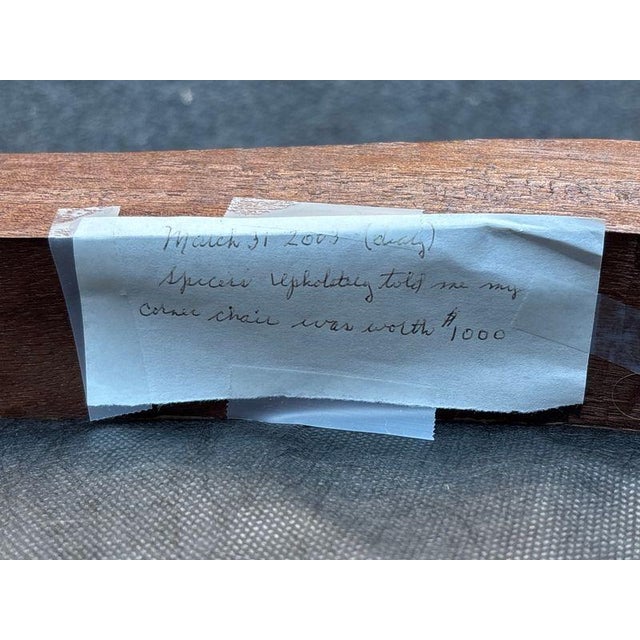 March 31
Spicers Upholstery told me my
corner chair was worth $1000